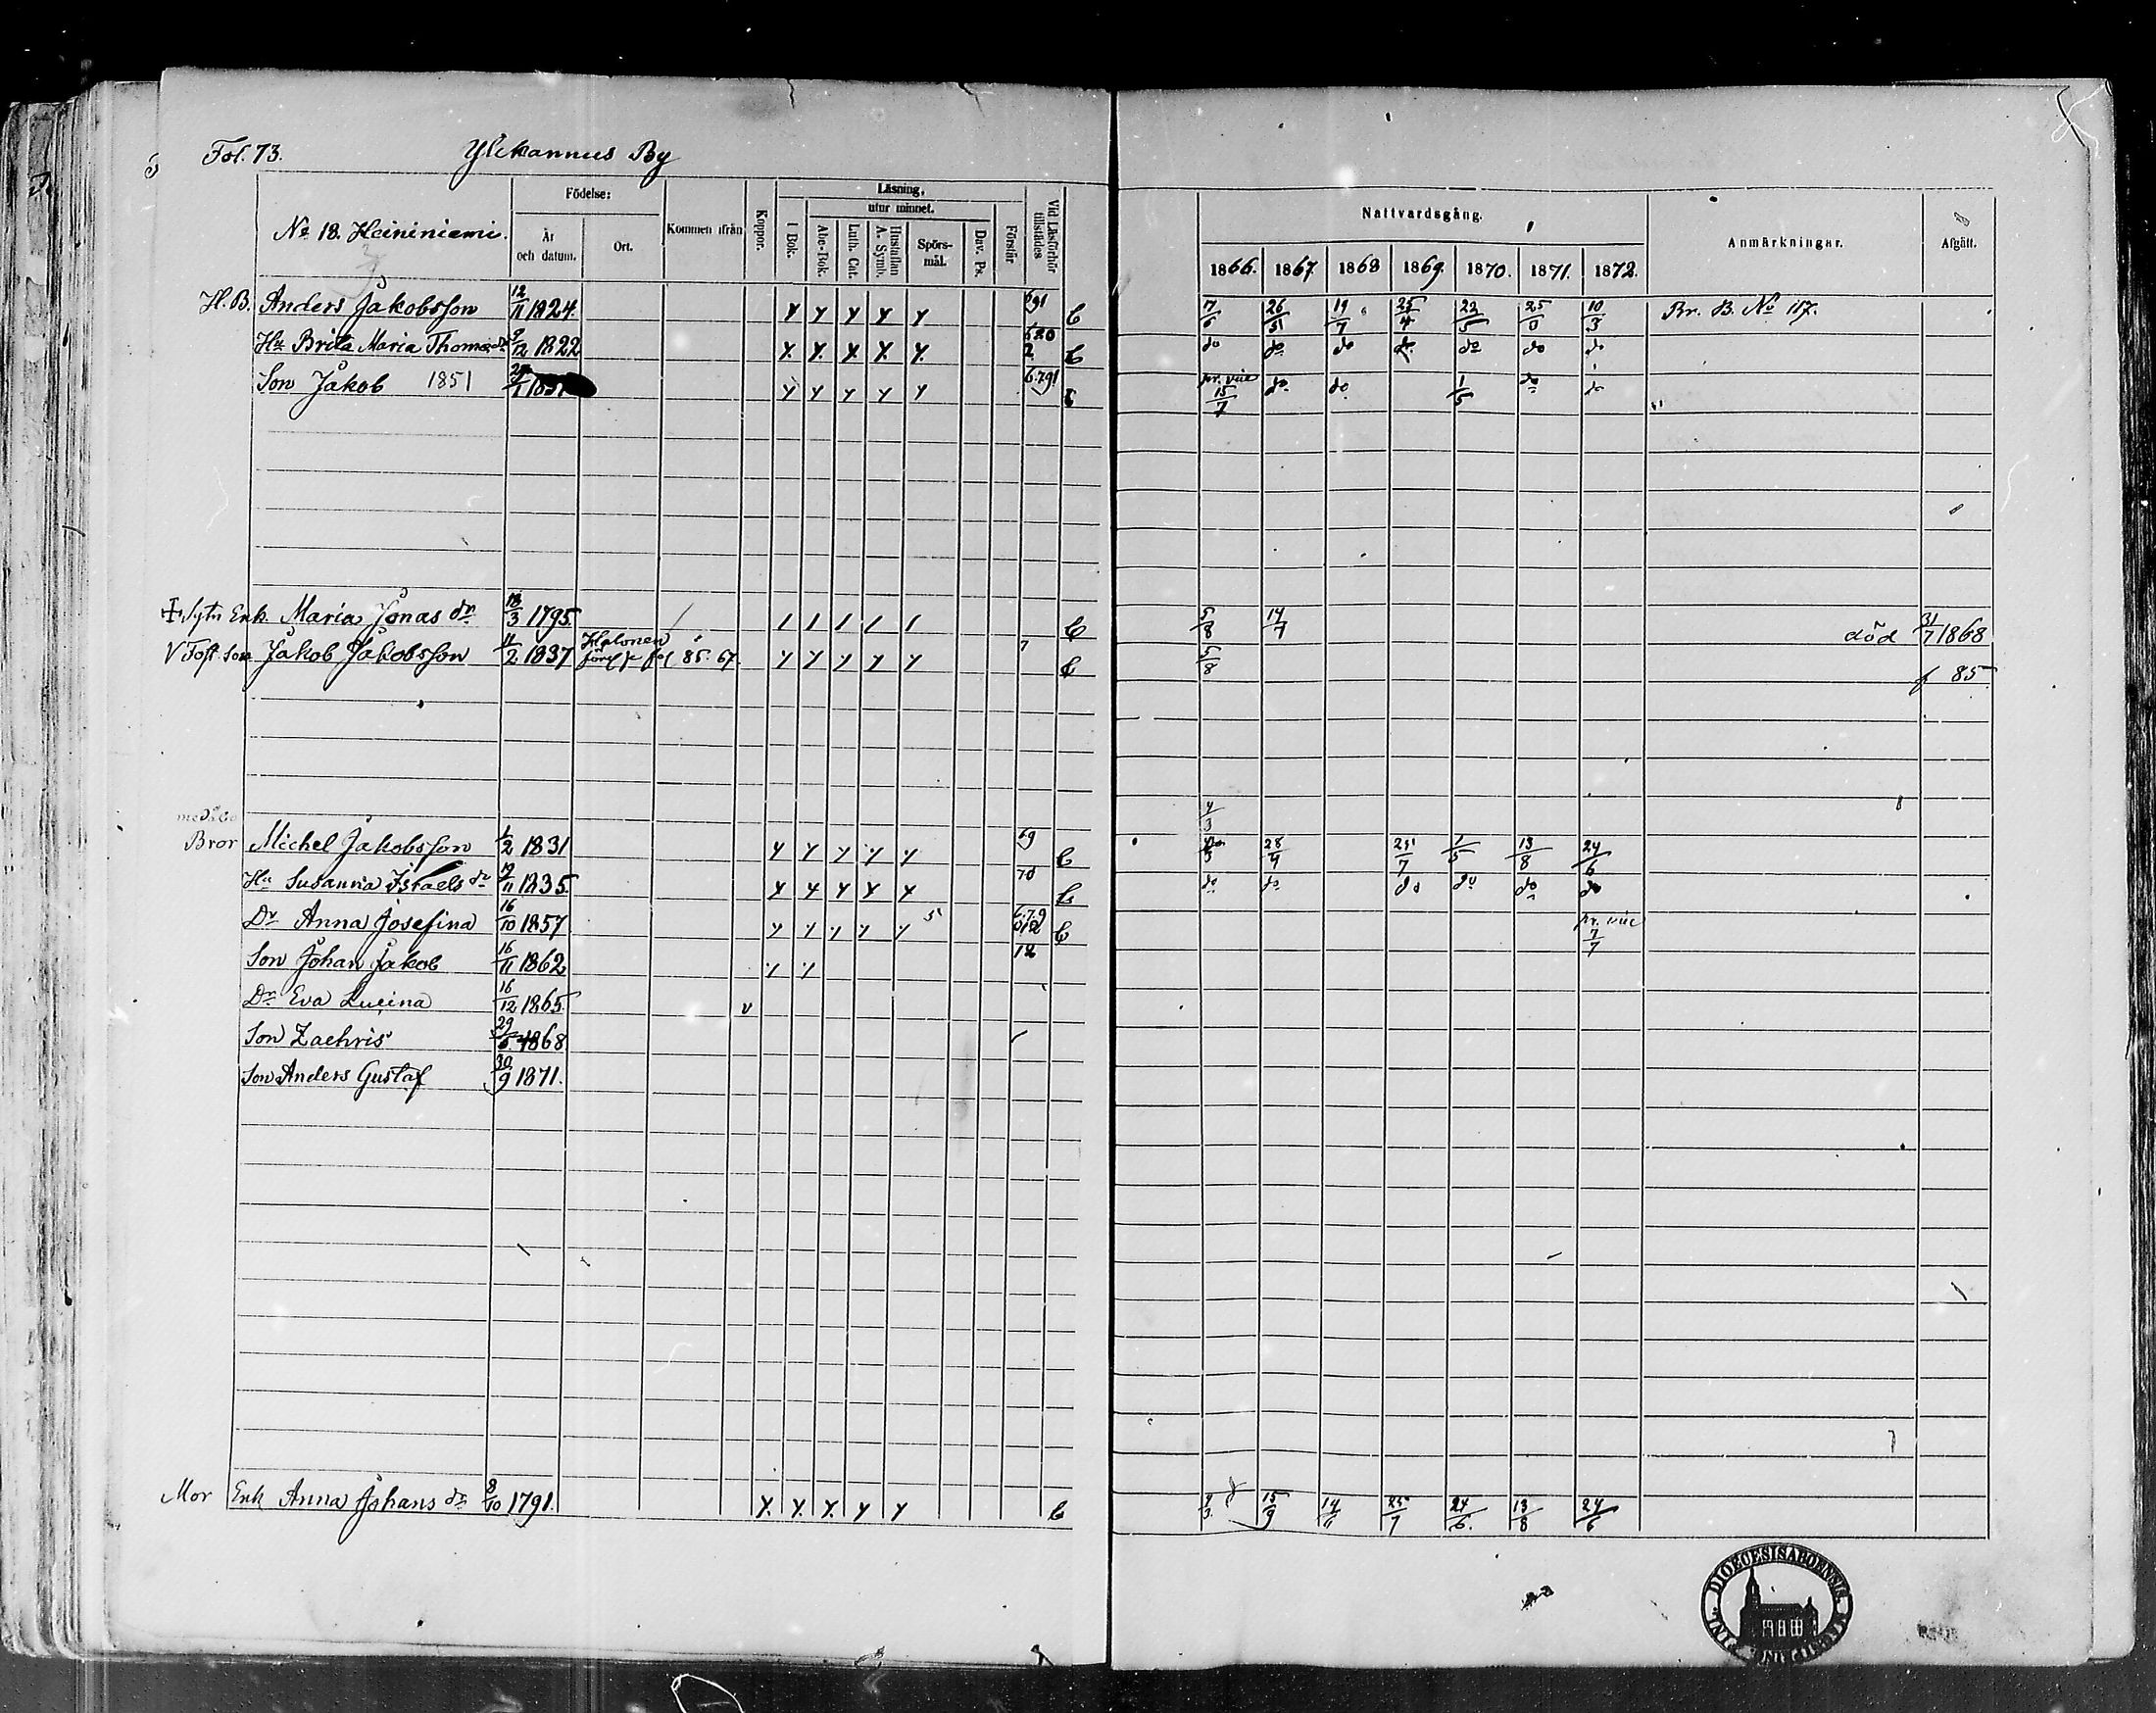 Fol. 73. Ylikannus By
No 18. Heininiemi.
Födelse:
År och datum.
Ort.
Kommen ifrån
Koppor.
Läsning,
utur minnet.
I Bok.
Abc-Bok.
Luth. Cat.
Hustaflan A. Symb.
Spörs-mål.
Dav. Ps.
Förstår
Vid Läsförhör tillstädes
Nattvardsgång.
Anmärkningar.
Afgått.
1866. 1867. 1868 1869. 1870. 1871. 1872.
H. B. Anders Jakobsson 12/11 1824. y y y y y 17/6 26/5 19/7 25/4 22/5 10/3 Br. B. No 117.
Hu Brita Maria Thomædr 9/12 1822 y y y y y do do do do do do do
Son Jakob 1851 y y y y y 6.791 pr. vice 15/7 do do 1/5 do do
Enk. Maria Jonas dr 18/3 1795 / / / / / 5/8 14/7 död 31/7 1868
V Fost. Son Jakob Jakobsson 11/2 1837 fol 85. 67. y y y y y 7 5/8 f 85
4/3
Bror Michel Jakobsson 1/2 1831 y y y y y 69 28/4 25/7 1/5 13/8 24/6
Hu Susanna Israels dr 1835 y y y y y 70 do do do do do do
Dr Anna Josefina 16/10 1857 y y y y y 5 6.7.9 pr. vice 7/7
Son Johan Jakob 16/11 1862 y y 12
Dr Eva Lucina 16/12 1865. v
Son Zachris 29/6 1868
Son Anders Gustaf 30/9 1871.
Mor Enk Anna Johans dr 8/10 1791. y y y y y 4/3 15/9 14/11 25/7 24/6. 13/8 24/6